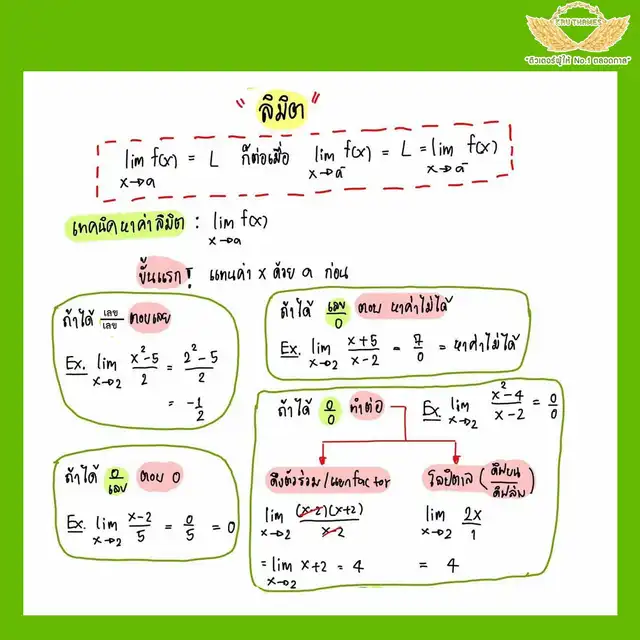 KRU THAMES
"ติวเตอร์ผู้ให้ No.1 ตลอดกาล"
"ลิมิต"
lim f(x) = L ก็ต่อเมื่อ lim f(x) = L = lim f(x)
x→a x→a⁻ x→a⁻
เทคนิคหาค่าลิมิต : lim f(x)
x→a
ขั้นแรก! แทนค่า x ด้วย a ก่อน
ถ้าได้ เลข/เลข ตอบเลย
Ex. lim x→2 (x²-5)/2 = (2²-5)/2
= -1/2
ถ้าได้ เลข/0 ตอบ หาค่าไม่ได้
Ex. lim x→2 (x+5)/(x-2) = 7/0 = หาค่าไม่ได้
ถ้าได้ 0/เลข ตอบ 0
Ex. lim x→2 (x-2)/5 = 0/5 = 0
ถ้าได้ 0/0 ทำต่อ
Ex. lim x→2 (x²-4)/(x-2) = 0/0
ดึงตัวร่วม/แยกfactor
lim x→2 (x-2)(x+2)/(x-2)
= lim x→2 x+2 = 4
โลปิตาล (ดิฟบน/ดิฟล่าง)
lim x→2 2x/1
= 4